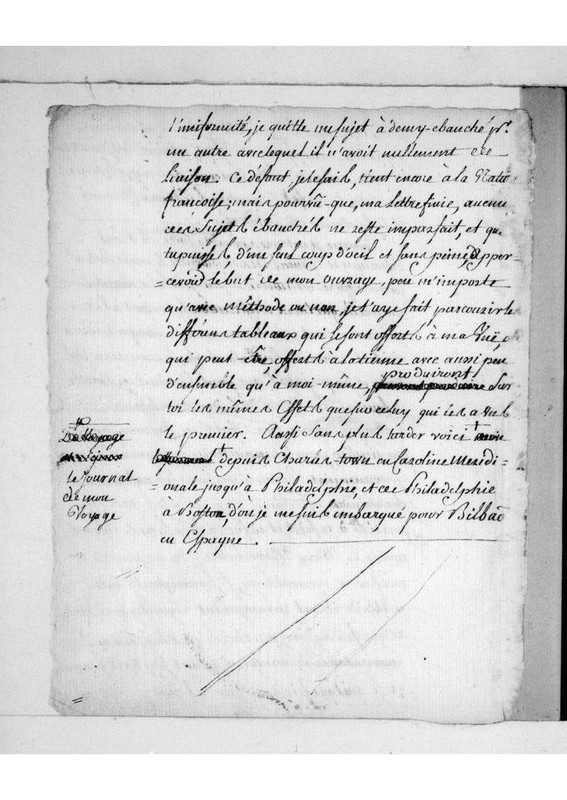 l'uniformité, je quitte un sujet à demy-ébauché pr.
un autre avec lequel il n'avoit nullement de
liaison. Ce defaut je le sais, tient encore a la Natio
françoise; mais pourvû-que, ma lettre finie, aucun
ces Sujets ébauchés ne reste imparfait, et qu.
tu puisses d'un seul coup d'oeil et sans peine, apper-
=cevoir le but de mon ouvrage, peu m'importe
qu'avec méthode ou non, je t'aye fait parcourir le
différens tableaux qui se sont offerts à ma Vuë,
qui peut-être offerts à la tienne avec aussi peu
d'ensemble qu'à moi-même, produiront Sur
toi les mêmes Effets que sur celuy qui les a vus
le premier. Aussi sans plus tarder voici + mon
+ depuis Charles-town en Caroline Meridi-
=onale jusqu'à Philadelphie, et de Philadelphie
à Boston, d'où je me suis embarqué pour Bilbao
en Espagne.
le Journal
de mon
Voyage